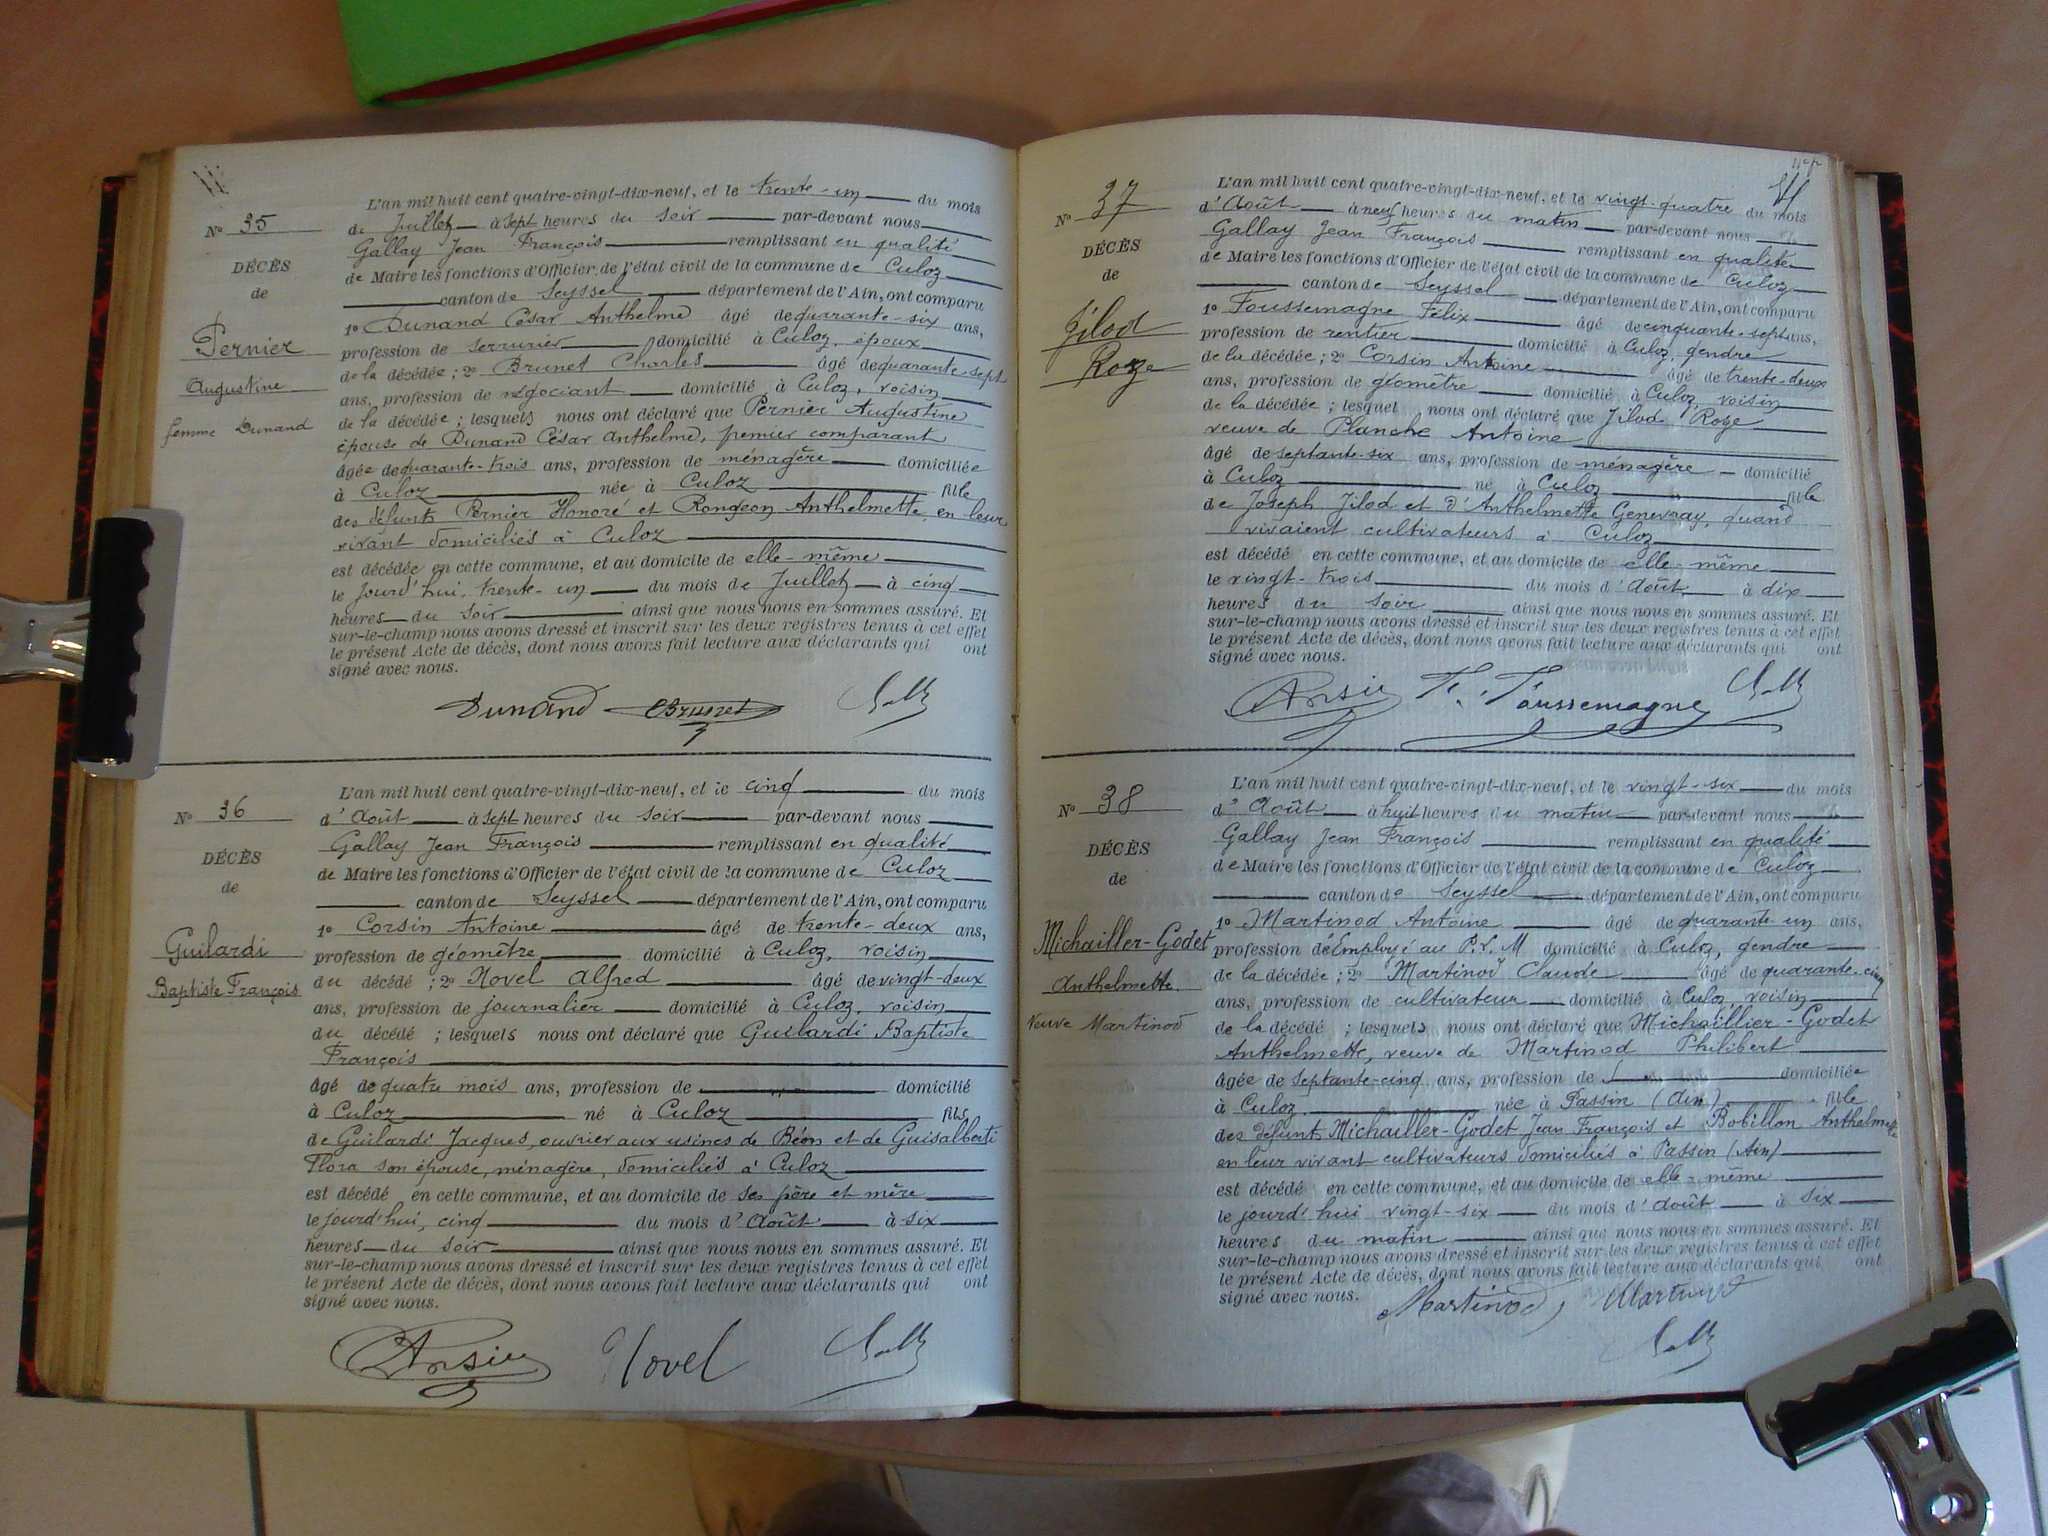 N° 35
DÉCÈS
de
Pernier
Augustine
femme Dunand
L'an mil huit cent quatre-vingt-dix-neuf, et le trente-un du mois
de Juillet à sept heures du soir par-devant nous
Gallay Jean François remplissant en qualité
de Maire les fonctions d'Officier de l'état civil de la commune de Culoz
canton de Seyssel département de l'Ain, ont comparu
1° Dunand César Anthelme âgé de quarante-six ans,
profession de serrurier domicilié à Culoz, époux
de la décédée ; 2° Brunet Charles âgé de quarante-sept
ans, profession de négociant domicilié à Culoz, voisin
de la décédée ; lesquels nous ont déclaré que Pernier Augustine
épouse de Dunand César Anthelme, premier comparant
âgée de quarante-trois ans, profession de ménagère domiciliée
à Culoz née à Culoz fille
des défunts Pernier Honoré et Rongeon Anthelmette, en leur
vivant domiciliés à Culoz
est décédée en cette commune, et au domicile de elle-même
le jourd'hui, trente-un du mois de Juillet à cinq
heures du soir ainsi que nous nous en sommes assuré. Et
sur-le-champ nous avons dressé et inscrit sur les deux registres tenus à cet effet
le présent Acte de décès, dont nous avons fait lecture aux déclarants qui ont
signé avec nous.
Dunand Brunet
N° 36
DÉCÈS
de
Guilardi
Baptiste François
L'an mil huit cent quatre-vingt-dix-neuf, et le cinq du mois
d'Août à sept heures du soir par-devant nous
Gallay Jean François remplissant en qualité
de Maire les fonctions d'Officier de l'état civil de la commune de Culoz
canton de Seyssel département de l'Ain, ont comparu
1° Corsin Antoine âgé de trente-deux ans,
profession de géomètre domicilié à Culoz, voisin
du décédé ; 2° Hovel Alfred âgé de vingt-deux
ans, profession de journalier domicilié à Culoz, voisin
du décédé ; lesquels nous ont déclaré que Guilardi Baptiste
François
âgé de quatre mois ans, profession de domicilié
à Culoz né à Culoz fils
de Guilardi Jacques, ouvrier aux usines de Béon et de Guisalberti
Flora son épouse, ménagère, domiciliés à Culoz
est décédé en cette commune, et au domicile de ses père et mère
le jourd'hui, cinq du mois d'Août à six
heures du soir ainsi que nous nous en sommes assuré. Et
sur-le-champ nous avons dressé et inscrit sur les deux registres tenus à cet effet
le présent Acte de décès, dont nous avons fait lecture aux déclarants qui ont
signé avec nous.
Corsin Hovel
N° 37
DÉCÈS
de
Jilod
Roze
L'an mil huit cent quatre-vingt-dix-neuf, et le vingt-quatre du mois
d'Août à neuf heures du matin par-devant nous
Gallay Jean François remplissant en qualité
de Maire les fonctions d'Officier de l'état civil de la commune de Culoz
canton de Seyssel département de l'Ain, ont comparu
1° Foussemagne Félix âgé de cinquante-sept ans,
profession de rentier domicilié à Culoz, gendre
de la décédée ; 2° Corsin Antoine âgé de trente-deux
ans, profession de géomètre domicilié à Culoz, voisin
de la décédée ; lesquel nous ont déclaré que Jilod Roze
veuve de Planche Antoine
âgé de septante-six ans, profession de ménagère domicilié
à Culoz né à Culoz fille
de Joseph Jilod et d'Anthelmette Genevray, quand
vivaient cultivateurs à Culoz
est décédé en cette commune, et au domicile de elle-même
le vingt-trois du mois d'Août à dix
heures du soir ainsi que nous nous en sommes assuré. Et
sur-le-champ nous avons dressé et inscrit sur les deux registres tenus à cet effet
le présent Acte de décès, dont nous avons fait lecture aux déclarants qui ont
signé avec nous.
Corsin F. Foussemagne
N° 38
DÉCÈS
de
Michailler-Godet
Anthelmette
Veuve Martinod
L'an mil huit cent quatre-vingt-dix-neuf, et le vingt-six du mois
d'Août à huit heures du matin par-devant nous
Gallay Jean François remplissant en qualité
de Maire les fonctions d'Officier de l'état civil de la commune de Culoz
canton de Seyssel département de l'Ain, ont comparu
1° Martinod Antoine âgé de quarante-un ans,
profession de Employé au P.L.M domicilié à Culoz, gendre
de la décédée ; 2° Martinod Claude âgé de quarante-cinq
ans, profession de cultivateur domicilié à Culoz, voisin
de la décédée ; lesquels nous ont déclaré que Michaillier-Godet
Anthelmette, veuve de Martinod Philibert
âgée de septante-cinq ans, profession de domiciliée
à Culoz née à Passin (Ain) fille
des défunts Michailler-Godet Jean François et Bobillon Anthelmette
en leur vivant cultivateurs domiciliés à Passin (Ain)
est décédé en cette commune, et au domicile de elle-même
le jourd'hui vingt-six du mois d'Août à six
heures du matin ainsi que nous nous en sommes assuré. Et
sur-le-champ nous avons dressé et inscrit sur les deux registres tenus à cet effet
le présent Acte de décès, dont nous avons fait lecture aux déclarants qui ont
signé avec nous.
Martinod Martinod